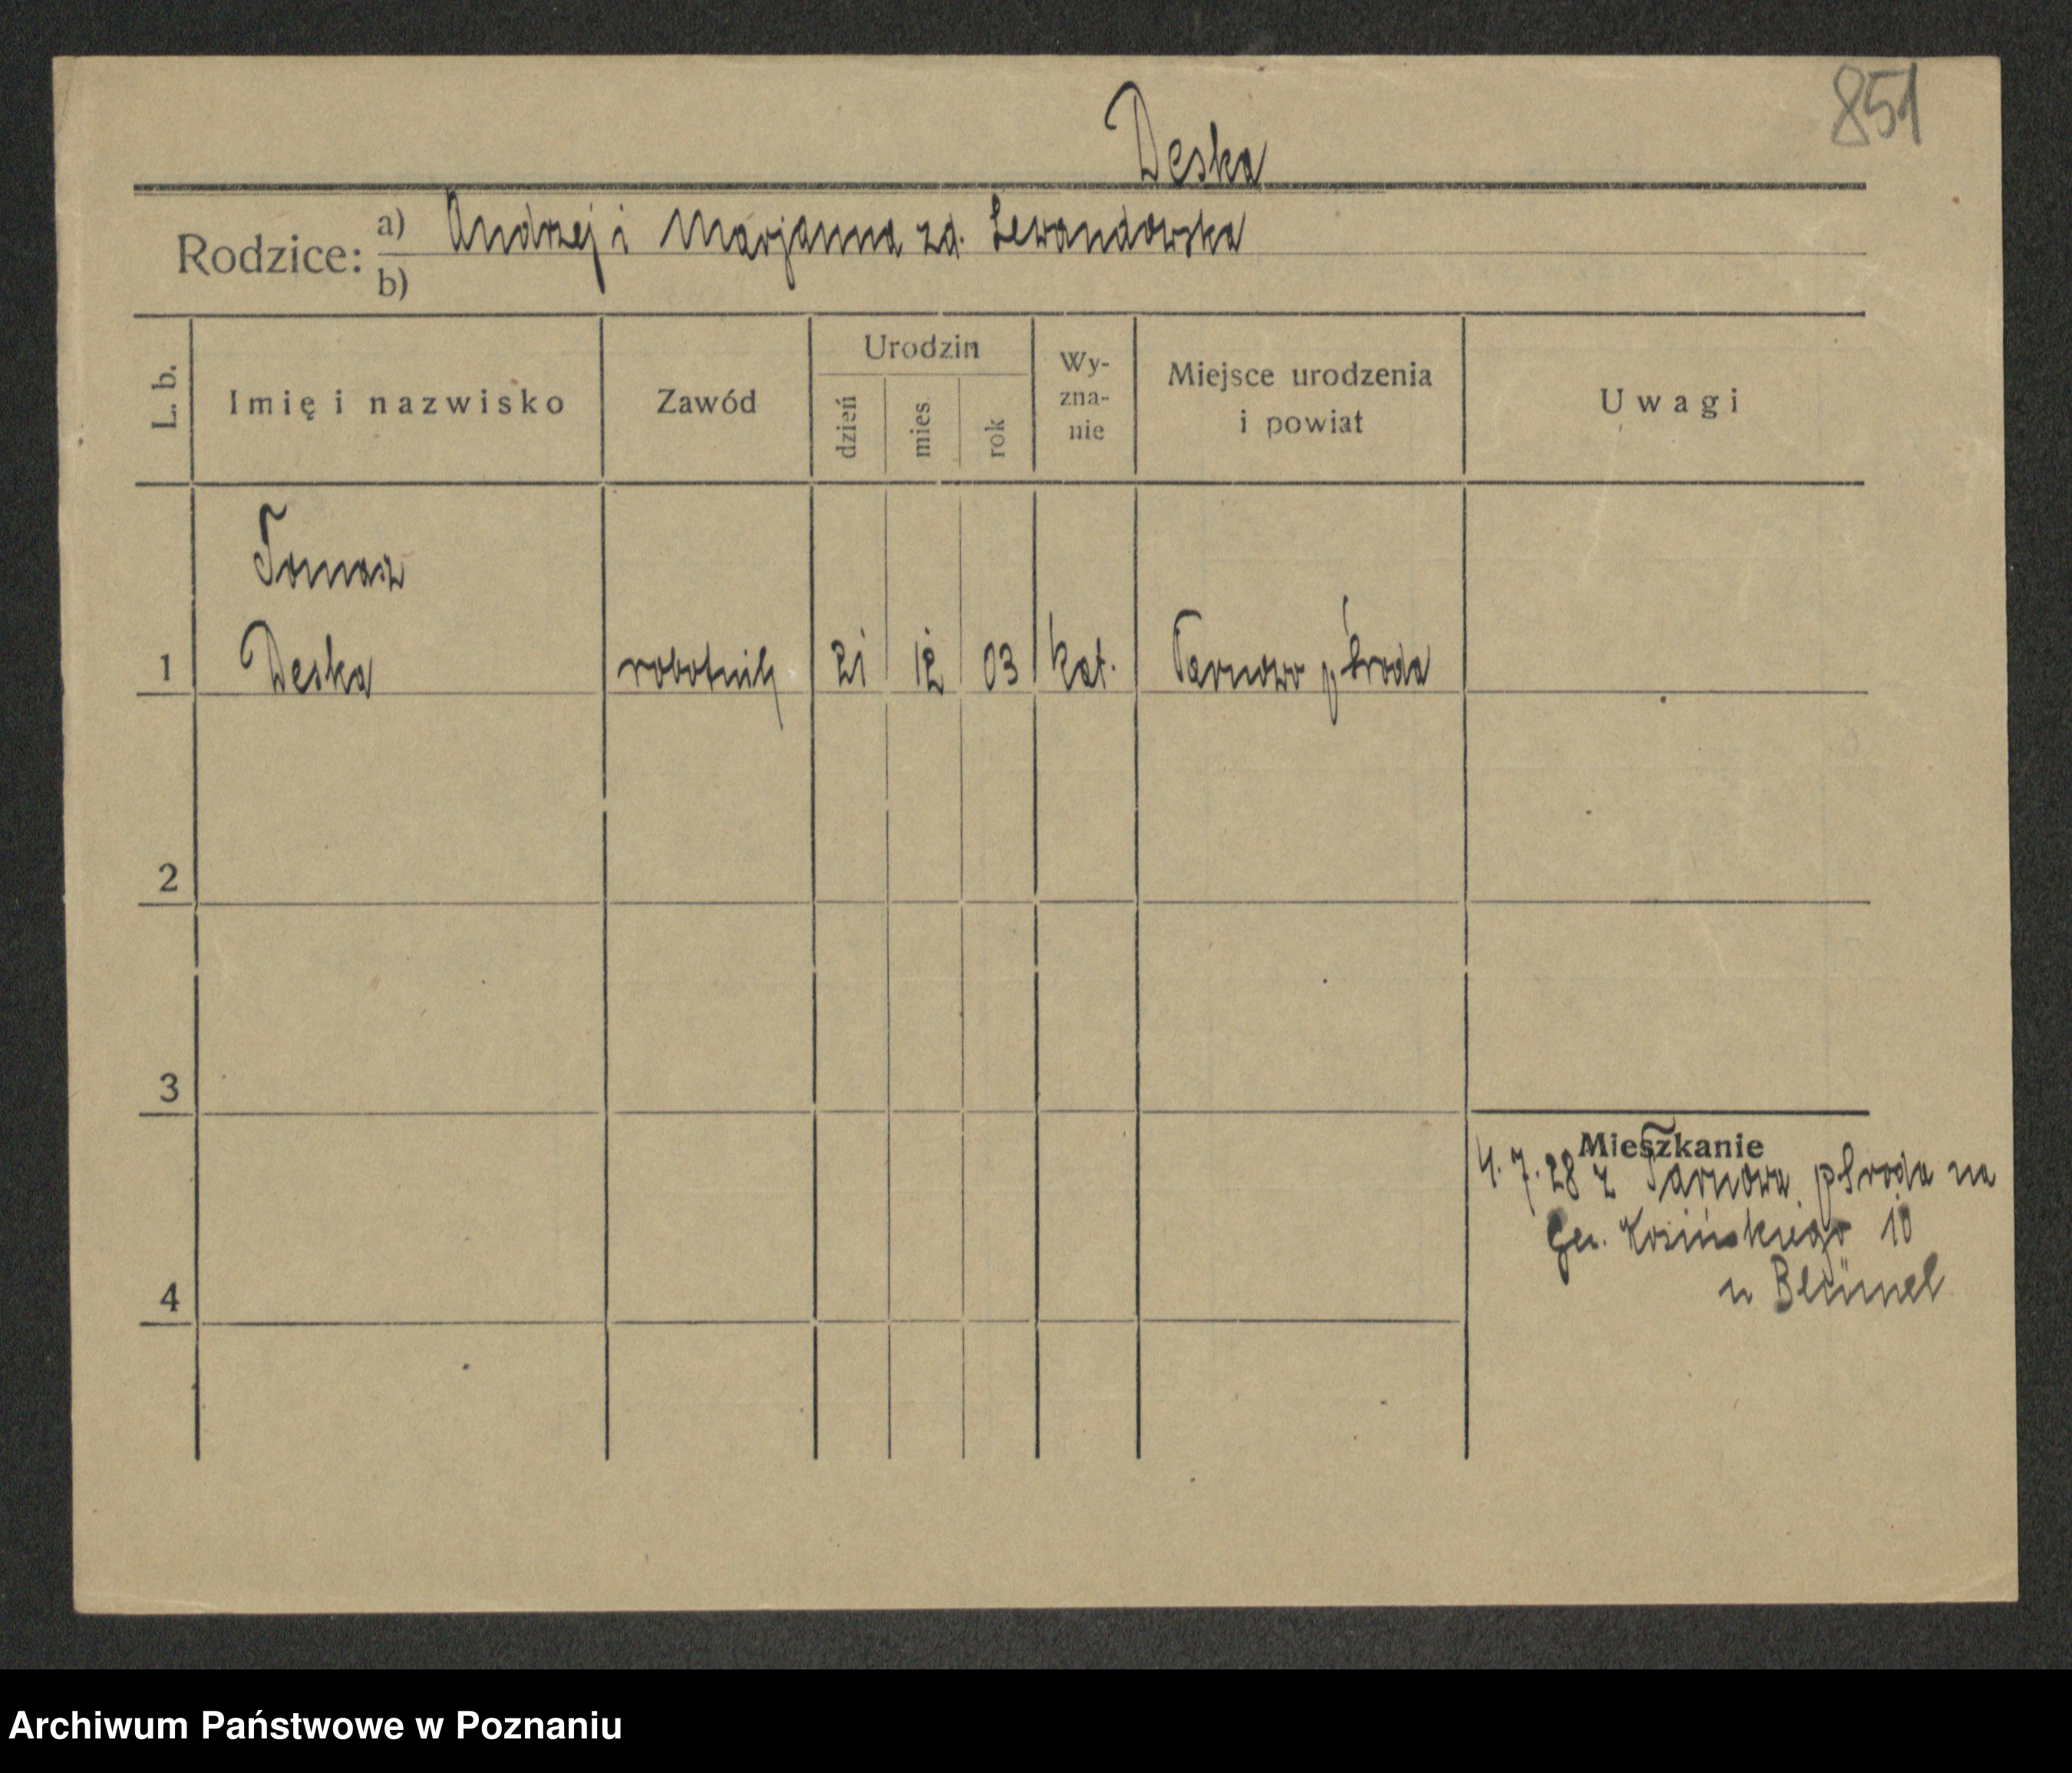 851
Deska
Rodzice: a) Andrzej i Marjanna zd. Lewandowska
b)
L. b.
Imię i nazwisko
Zawód
Urodzin
dzień
mies.
rok
Wy-
zna-
nie
Miejsce urodzenia
i powiat
Uwagi
Tomasz
1 Deska robotnik 21 12 03 kat. Tarnowo p Środa
2
3
4
Mieszkanie
4.7.28 z Tarnowa pŚroda na
Gen. Kosińskiego 10
u Blümel
Archiwum Państwowe w Poznaniu